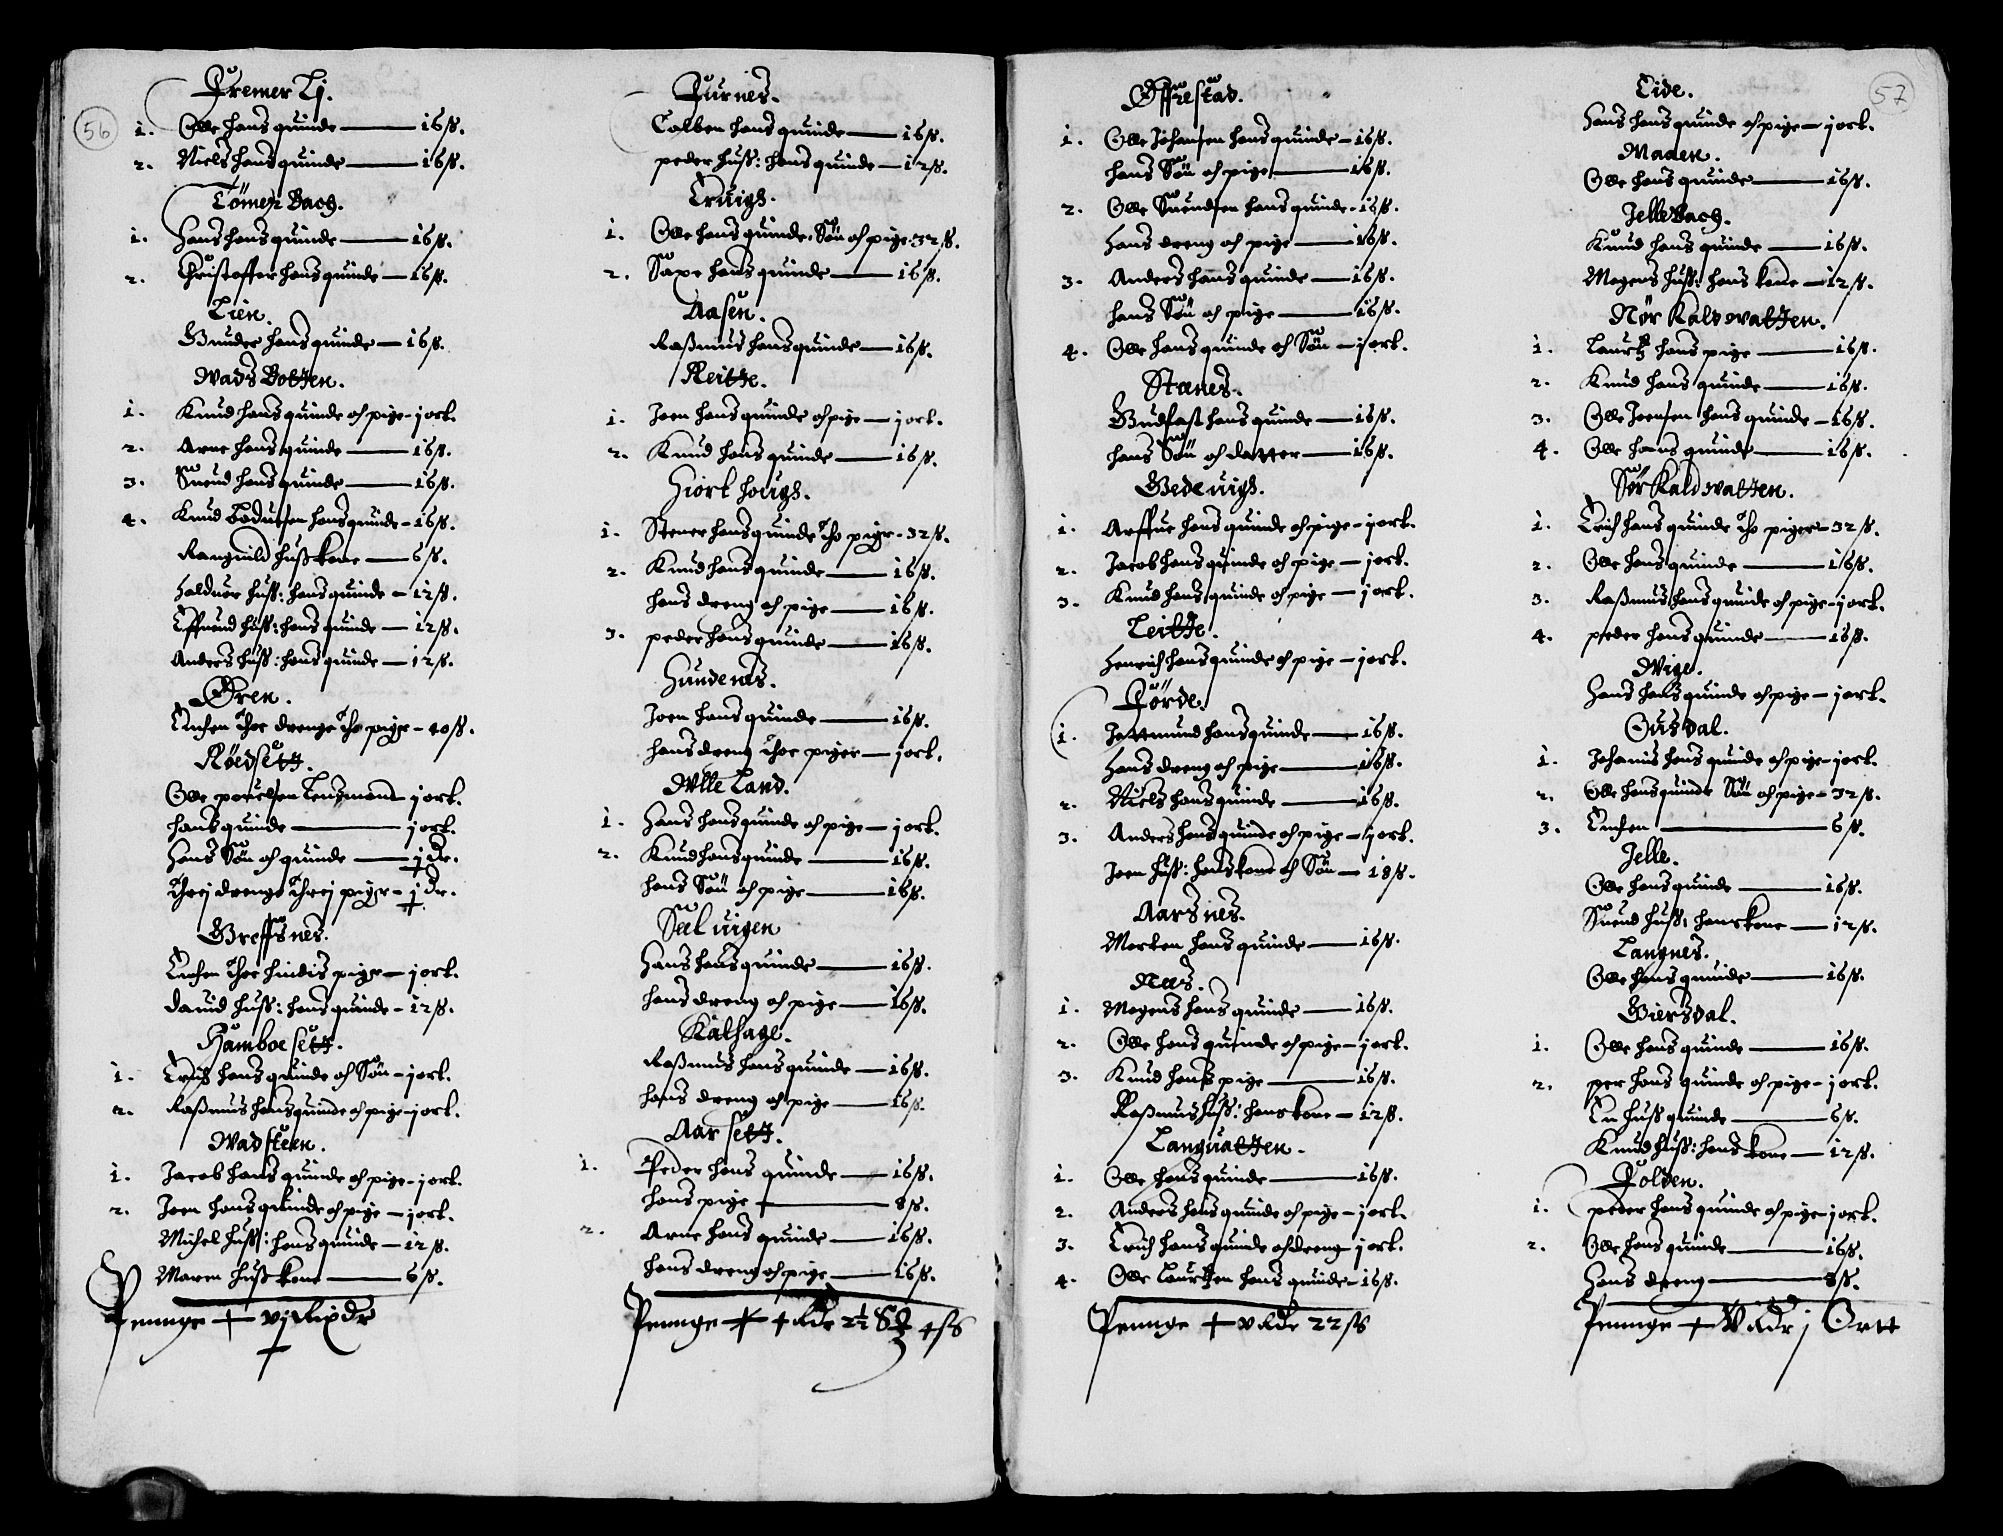 56
Fremer Lj.
1. Olle hans quinde — 16 ß.
2. Niels hans quinde — 16 ß.
Tömer Bach.
1. Hans hans quinde — 16 ß.
2. Christoffer hans quinde — 16 ß.
Lien.
Gunder hans quinde — 16 ß.
Wads Botten.
1. Knud hans quinde och pige — j ort.
2. Arne hans quinde — 16 ß.
3. Suend hans quinde — 16 ß.
4. Knud hans quinde — 16 ß.
Rangnild huß kone — 6 ß.
Halduor huß: hans quinde — 12 ß.
Effuend huß: hans quinde — 12 ß.
Anders huß: hans quinde — 12 ß.
Øren.
Enchen thoe drenge tho piger — 40 ß.
Røedsett.
Olle pouelsen Lensmand j ort.
hans quinde — j ort.
Hans Søn och quinde — j dr.
threj drenge threj piger — j dr.
Greffsnes.
Enchen thoe piger — j ort.
Dauid huß: hans quinde — 12 ß.
Hamboesett.
1. Erich hans quinde och Søn — j ort.
2. Raßmus hans quinde och pige — j ort.
Wadsteen.
1. Jacob hans quinde och pige — j ort.
2. Joen hans quinde och pige — j ort.
Michel huß: hans quinde — 12 ß.
Maren huß kone — 6 ß.
Penninge + vj Rixdr
Furnes.
Tolben hans quinde — 16 ß.
peder huß: hans quinde — 12 ß.
Eruigh.
1. Olle hans quinde, Søn och pige — 32 ß.
2. Saxe hans quinde — 16 ß.
Aasen.
Raßmus hans quinde — 16 ß.
Reitte.
1. Joen hans quinde och pige — j ort.
2. Knud hans quinde — 16 ß.
Hiort hough.
1. Stener hans quinde tho piger — 32 ß.
2. Knud hans quinde — 16 ß.
hans dreng och pige — 16 ß.
3. peder hans quinde — 16 ß.
Hundenes.
Joen hans quinde — 16 ß.
hans dreng thoe piger — j ort.
Wlle Land.
1. Hans hans quinde och pige — j ort.
2. Knud hans quinde — 16 ß.
hans Søn och pige — 16 ß.
Seluigen
Hans hans quinde — 16 ß.
hans dreng och pige — 16 ß.
Kalhage.
Raßmus hans quinde — 16 ß.
hans dreng och pige — 16 ß.
Aarsett.
1. Peder hans quinde — 16 ß.
hans pige — 8 ß.
2. Arne hans quinde — 16 ß.
hans dreng och pige — 16 ß.
Penninge + 4 Rdr 2½ 4 ß
Øffrestad.
1. Olle Johansen hans quinde — 16 ß.
hans Søn och pige — 16 ß.
2. Olle Suendsen hans quinde — 16 ß.
Hans dreng och pige — 16 ß.
3. Anders hans quinde — 16 ß.
hans Søn och pige — 16 ß.
4. Olle hans quinde och Søn — j ort.
Stænes.
Gudfast hans quinde — 16 ß.
hans Søn och datter — 16 ß.
Gedeuigh.
1. Arffue hans quinde och pige — j ort.
2. Jacob hans quinde och pige — j ort.
3. Knud hans quinde och pige — j ort.
Leitte.
Henrich hans quinde och pige — j ort.
Förde.
1. Jattmund hans quinde — 16 ß.
Hans dreng och pige — 16 ß.
2. Niels hans quinde — 16 ß.
3. Anders hans quinde och pige — j ort.
Joen huß: hans kone och Søn — 18 ß.
Aarsnes.
Morten hans quinde — 16 ß.
Nees.
1. Mogens hans quinde — 16 ß.
2. Olle hans quinde och pige — j ort.
3. Knud hans pige — 16 ß.
Raßmus huß: hans kone — 12 ß.
Languatten.
1. Olle hans quinde — 16 ß.
2. Anders hans quinde och pige — j ort.
3. Erich hans quinde och dreng j ort.
4. Olle Lauritzen hans quinde — 16 ß.
Penninge + v Rdr 22 ß
57
Eide.
Hans hans quinde och pige — j ort.
Maaen.
Olle hans quinde — 16 ß.
Jelle Bach.
Knud hans quinde — 16 ß.
Mogens huß: hans kone — 12 ß.
Nør Kaldwatten.
1. Lauritz hans pige — 16 ß.
2. Knud hans quinde — 16 ß.
3. Olle Joensen hans quinde — 16 ß.
4. Olle hans quinde — 16 ß.
Sør Kaldwatten.
1. Erich hans quinde tho piger — 32 ß.
2. Olle hans quinde — 16 ß.
3. Raßmus hans quinde och pige — j ort.
4. peder hans quinde — 16 ß.
Wige.
Hans hans quinde och pige — j ort.
Gusdal.
1. Johanis hans quinde och pige — j ort.
2. Olle hans quinde Søn och pige — 32 ß.
3. Enchen — 6 ß.
Jelle.
Olle hans quinde — 16 ß.
Suend huß: hans kone — 12 ß.
Langnes.
Olle hans quinde — 16 ß.
Giersdal.
1. Olle hans quinde — 16 ß.
2. per hans quinde och pige — j ort.
En huß quinde — 6 ß.
Knud huß: hans kone — 12 ß.
Folden.
1. peder hans quinde och pige — j ort.
2. Olle hans quinde — 16 ß.
Hans dreng — 8 ß.
Penninge + V Rdr j Ortt